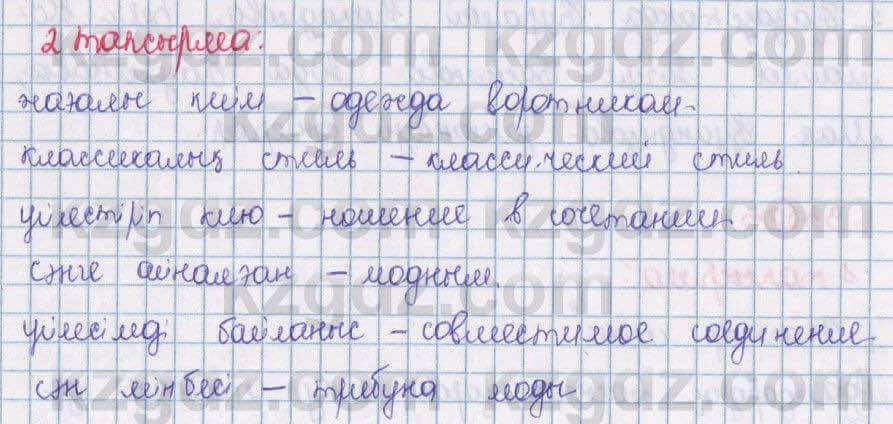 2 тапсырма:
жағалы киім – одежда воротникам.
классикалық стиль – классический стиль.
үйлестіріп кию – ношение в сочетании
сәнге айналған – модным.
үйлесімді байланыс – совместимое соединение.
сән мінбесі – трибуна моды
kzgdz.com